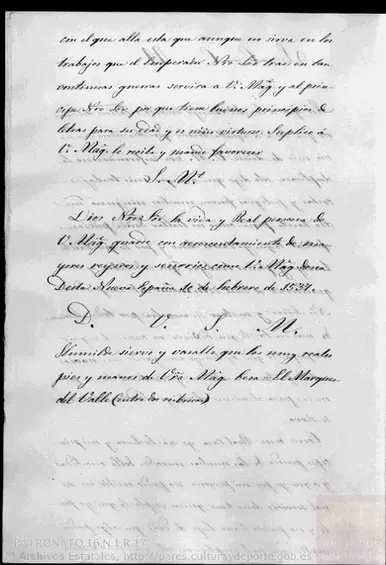 con el que alla esta que aunque no sirva en los
trabajos que el Emperador Ntro Sor trae en tan
continuas guerras servira a V. Mag. y al prin-
cipe Ntro Sor por que tiene buenos principios de
letras para su edad y es niño virtuoso. Suplico á
V. Mag. le reciba y mande favorecer
S. M.d
Dios Ntro Sor la vida y Real persona de
V. Mag. guarde con acrecentamiento de ma-
yores reynos y señorios como V. Mag. desea
De esta Nueva España 10 de febrero de 1537.
D. V. S. M.
Humilde siervo y vasallo que los muy reales
pies y manos de Vra Mag. besa = El Marques
del Valle (entre dos rubricas)
PATRONATO,16,N.1,R.17
© Archivos Estatales, http://pares.culturaydeporte.gob.es